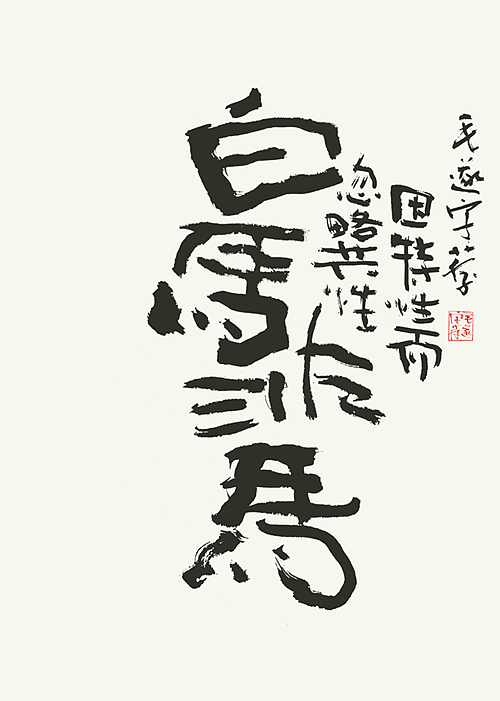 毛遂字荐
因特性而
忽略共性
白馬非馬